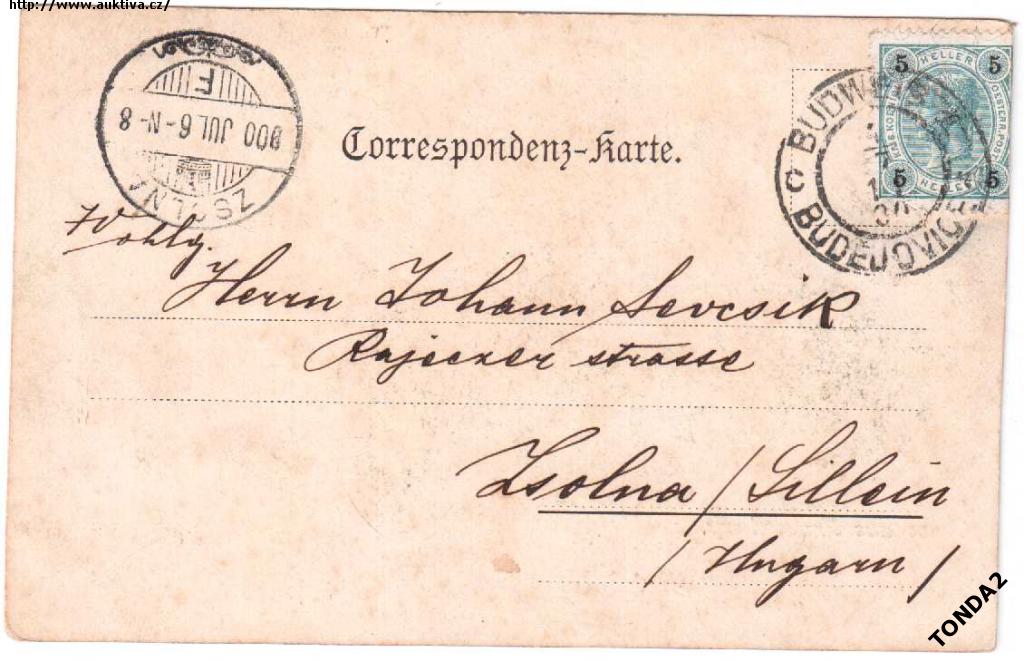 http://www.auktiva.cz/
ZSOLNA
900 JUL 6-N-8
F
Correspondenz-Karte.
5 HELLER 5
5 HELLER 5
BUDWEIS
BUDĚJOVICE
Wohlg.
Herrn Johann Sevcsik
Rajeczer strasse
Zsolna / Sillein
/ Ungarn /
TONDA2